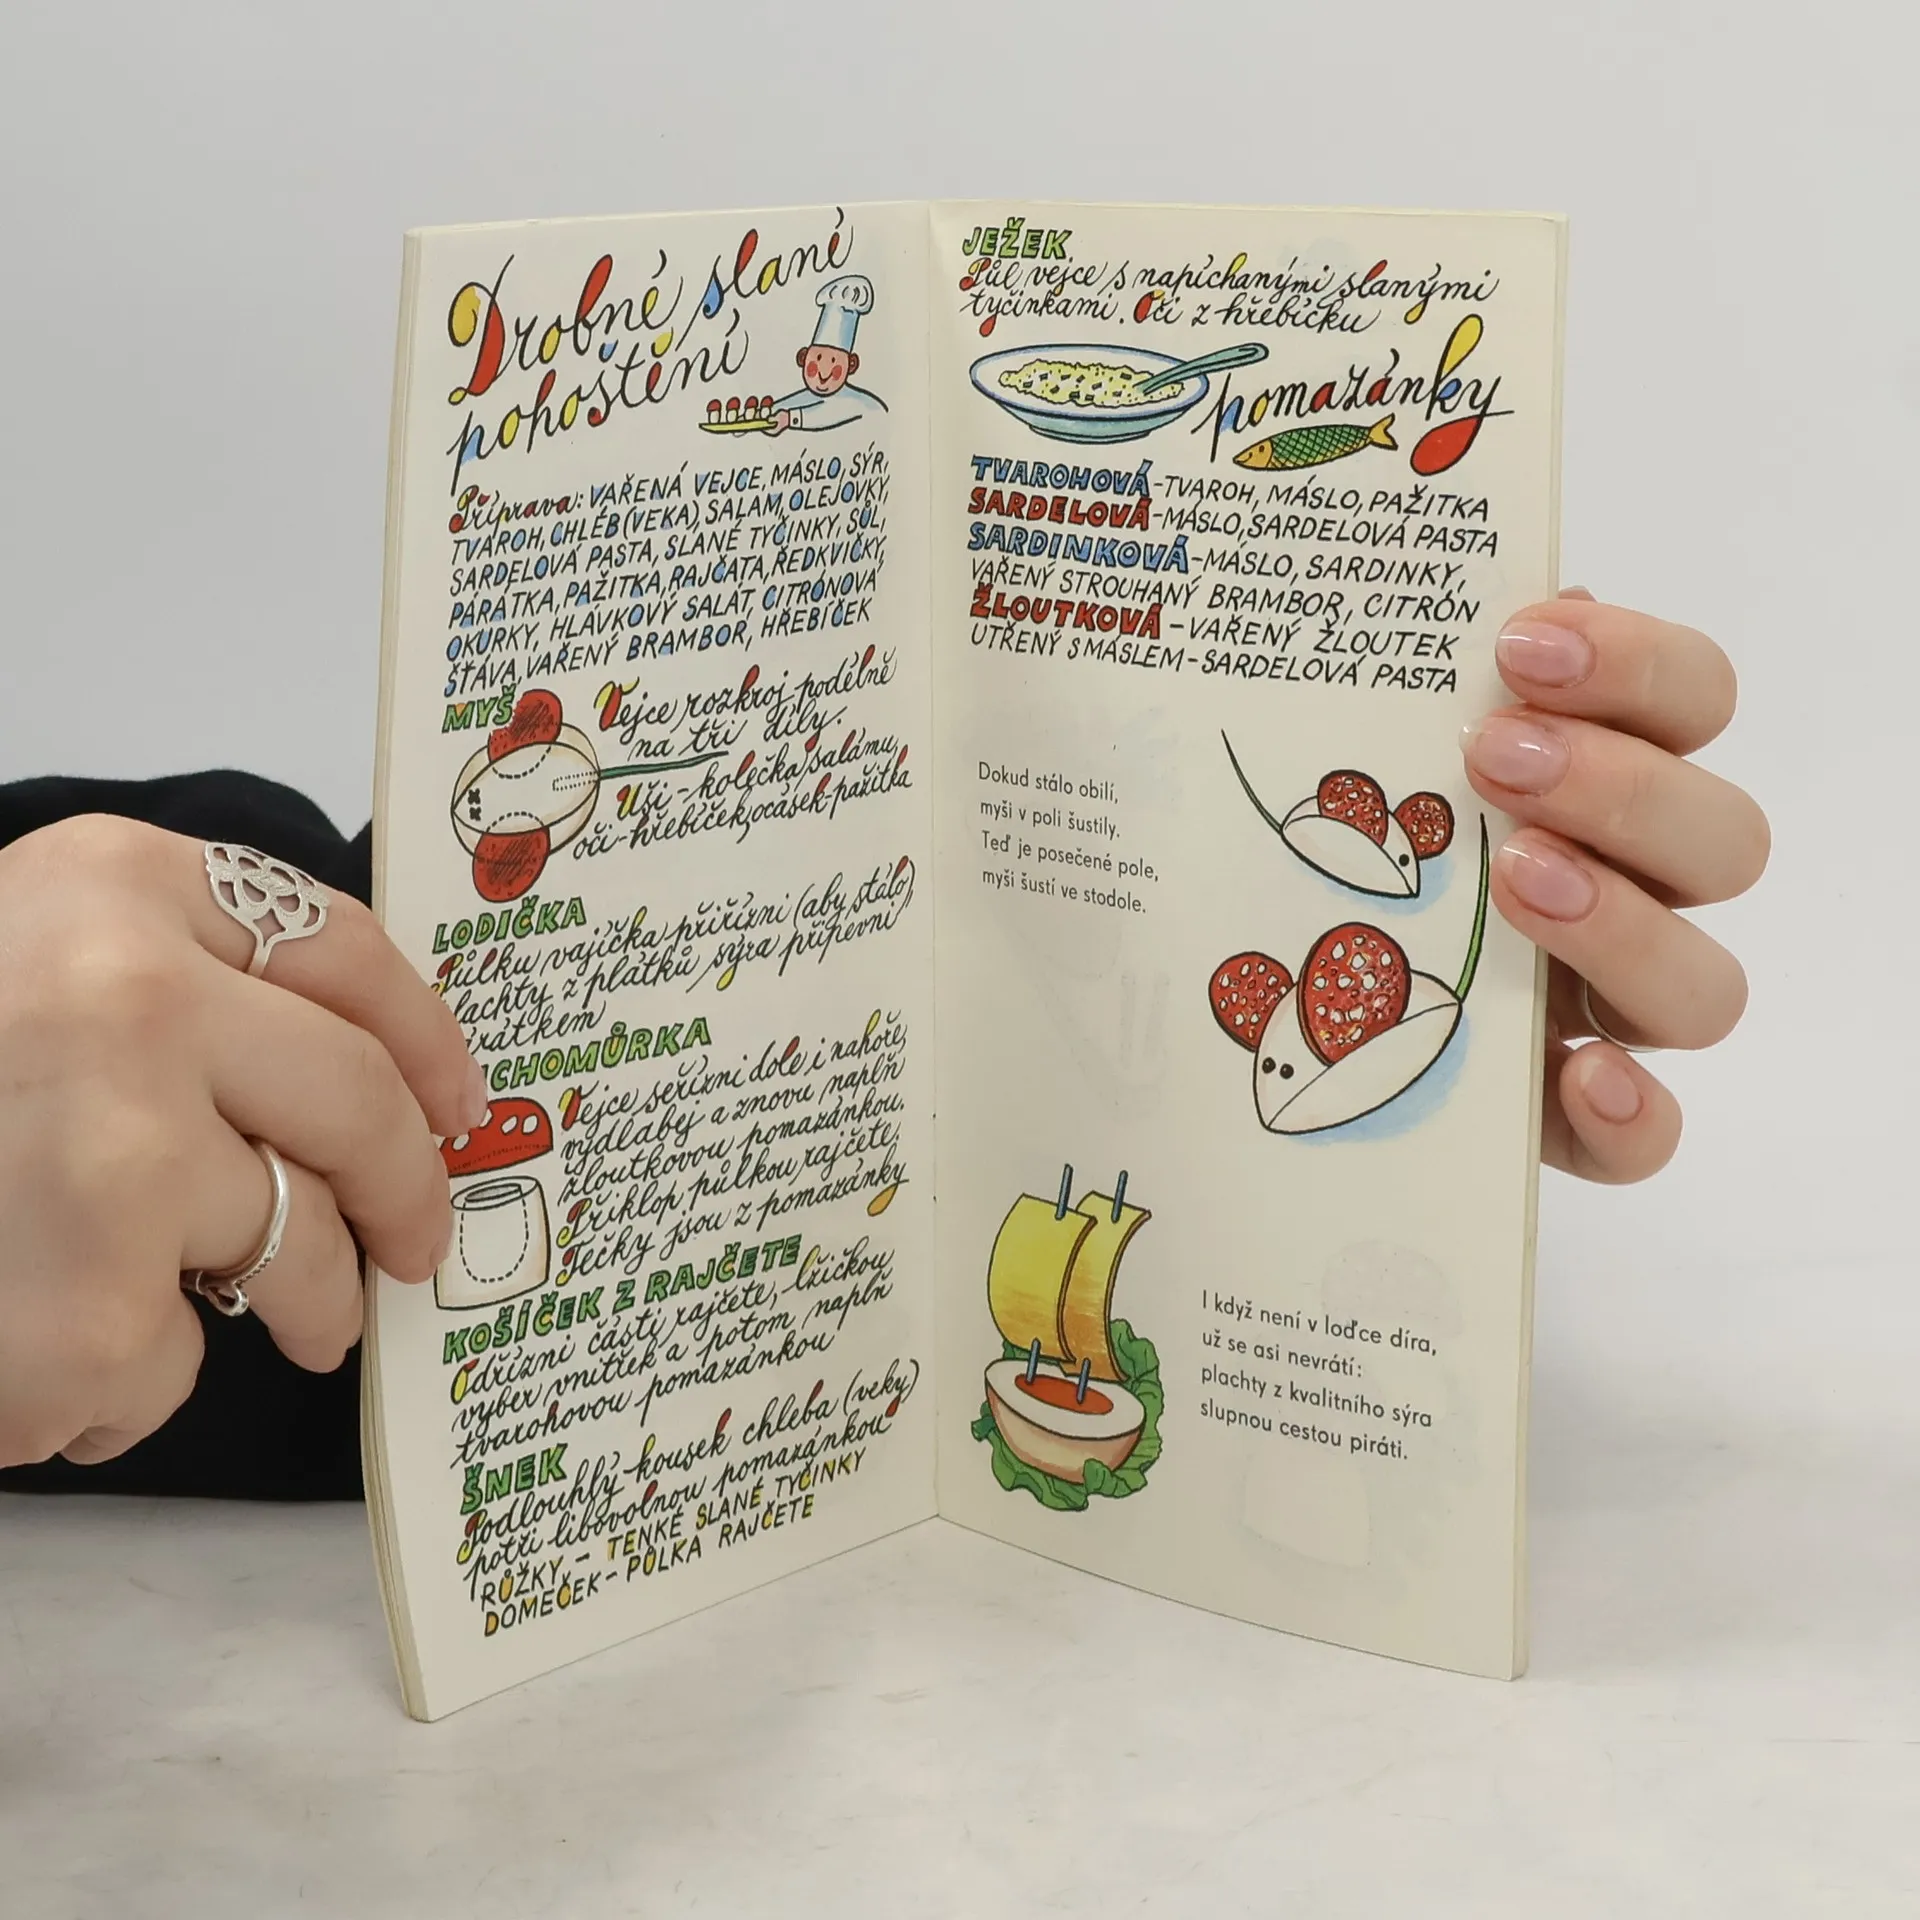 Drobné slané
pohoštění
Příprava: VAŘENÁ VEJCE, MÁSLO, SÝR,
TVAROH, CHLÉB (VEKA), SALÁM, OLEJOVKY,
SARDELOVÁ PASTA, SLANÉ TYČINKY, SŮL,
PÁRÁTKA, PAŽITKA, RAJČATA, ŘEDKVIČKY,
OKURKY, HLÁVKOVÝ SALÁT, CITRÓNOVÁ
ŠŤÁVA, VAŘENÝ BRAMBOR, HŘEBÍČEK
MYŠ
Vejce rozkroj podélně
na tři díly.
Uši - kolečka salámu,
oči - hřebíček, ocásek - pažitka
LODIČKA
Půlku vajíčka přiřízni (aby stálo)
lachty z plátků sýra připevni
rátkem
CHOMŮRKA
Vejce seřízni dole i nahoře,
vydlabej a znovu naplň
žloutkovou pomazánkou.
Přiklop půlkou rajčete.
Tečky jsou z pomazánky
KOŠÍČEK Z RAJČETE
Odřízni části rajčete, - lžičkou
vyber vnitřek a potom naplň
tvarohovou pomazánkou
ŠNEK
Podlouhlý kousek chleba (veky)
potři libovolnou pomazánkou
RŮŽKY - TENKÉ SLANÉ TYČINKY
DOMEČEK - PŮLKA RAJČETE
JEŽEK
Půl vejce s napíchanými slanými
tyčinkami. Oči z hřebíčku
pomazánky
TVAROHOVÁ - TVAROH, MÁSLO, PAŽITKA
SARDELOVÁ - MÁSLO, SARDELOVÁ PASTA
SARDINKOVÁ - MÁSLO, SARDINKY,
VAŘENÝ STROUHANÝ BRAMBOR, CITRÓN
ŽLOUTKOVÁ - VAŘENÝ ŽLOUTEK
UTŘENÝ S MÁSLEM - SARDELOVÁ PASTA
Dokud stálo obilí,
myši v poli šustily.
Teď je posečené pole,
myši šustí ve stodole.
I když není v loďce díra,
už se asi nevrátí:
plachty z kvalitního sýra
slupnou cestou piráti.